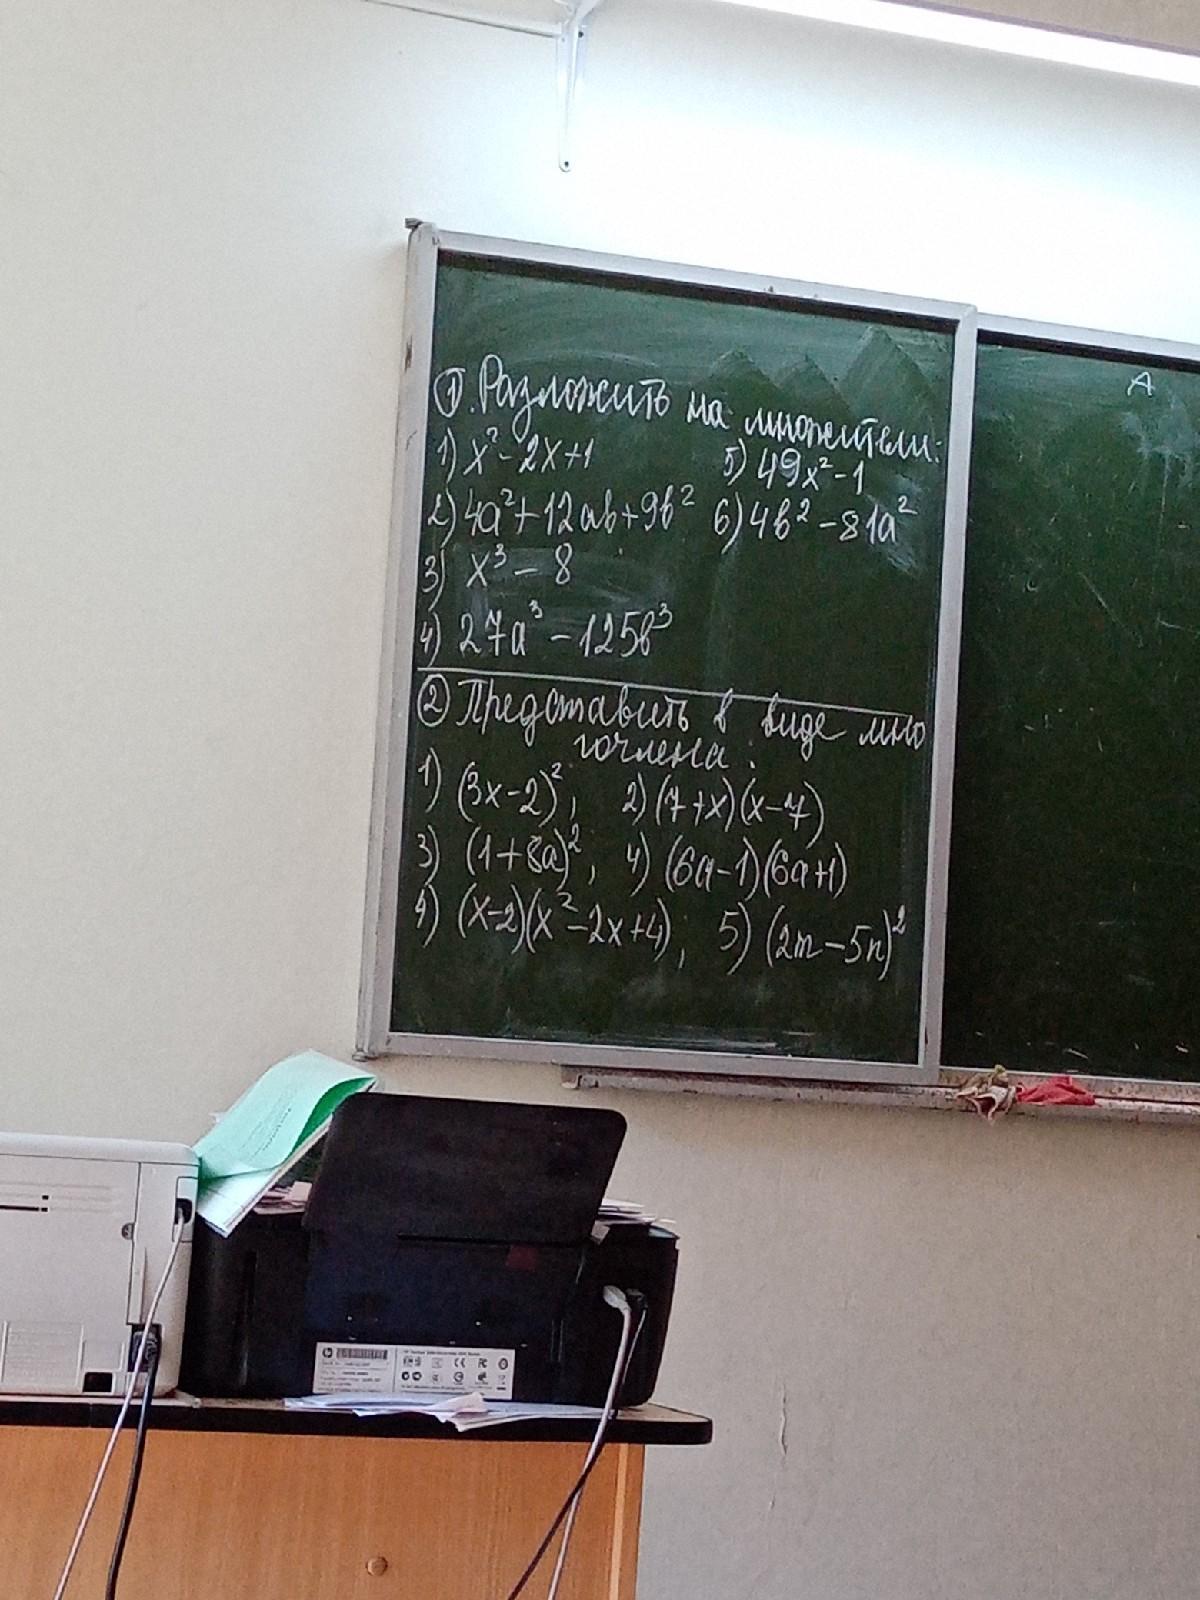 ①. Разложить на множители:
1) x² - 2x + 1   5) 49x² - 1
2) 4a² + 12ab + 9b²   6) 4b² - 81a²
3) x³ - 8
4) 27a³ - 125b³
② Представить в виде мно
гочлена:
1) (3x - 2)²;   2) (7 + x)(x - 7)
3) (1 + 8a)²;   4) (6a - 1)(6a + 1)
4) (x - 2)(x² - 2x + 4);   5) (2m - 5n)²
A